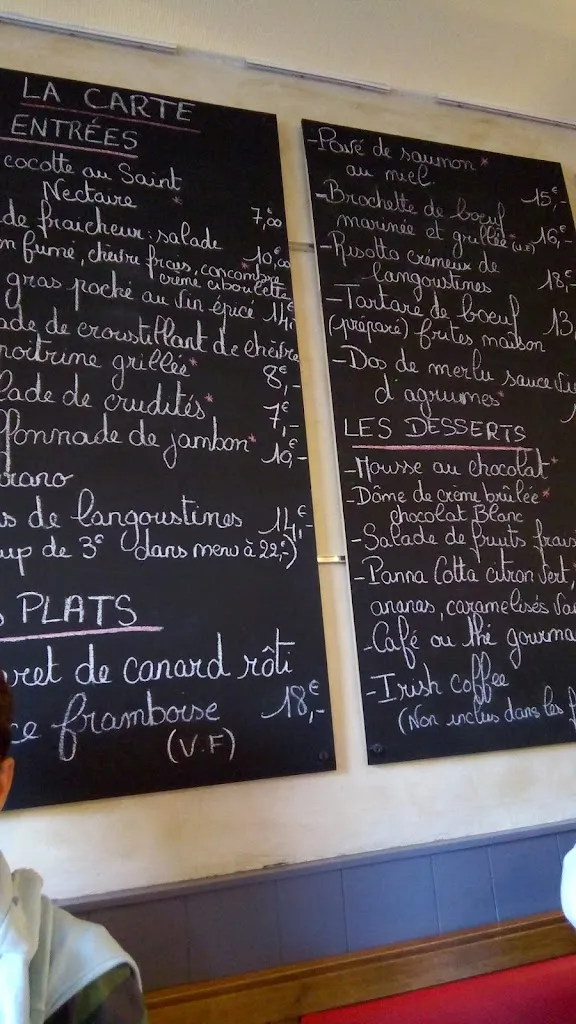 LA CARTE
ENTRÉES
cocotte au Saint
Nectaire * 7,00€
de fraicheur: salade
fumé, chèvre frais, concombre 10,00€
crème ciboulette
gras poché au vin épicé 14,-
de croustillant de chèvre
poitrine grillée* 8€,-
de crudités* 7€,-
de jambon* 10€,-
de langoustines 14€,-
de 3€ dans menu à 22,-)
PLATS
de canard rôti
framboise 18€,-
(V.F)
-Pavé de saumon*
au miel. 15€,-
-Brochette de boeuf
marinée et grillée* (V.F) 16€,-
-Risotto crémeux de
langoustines 18€,-
-Tartare de boeuf 13,
(préparé) frites maison
-Dos de merlu sauce
d'agrumes*
LES DESSERTS
-Mousse au chocolat*
-Dôme de crème brûlée*
chocolat Blanc
-Salade de fruits frais
-Panna Cotta citron vert,
ananas, caramelisés
-Café ou thé gourma
-Irish coffee
(Non inclus dans les